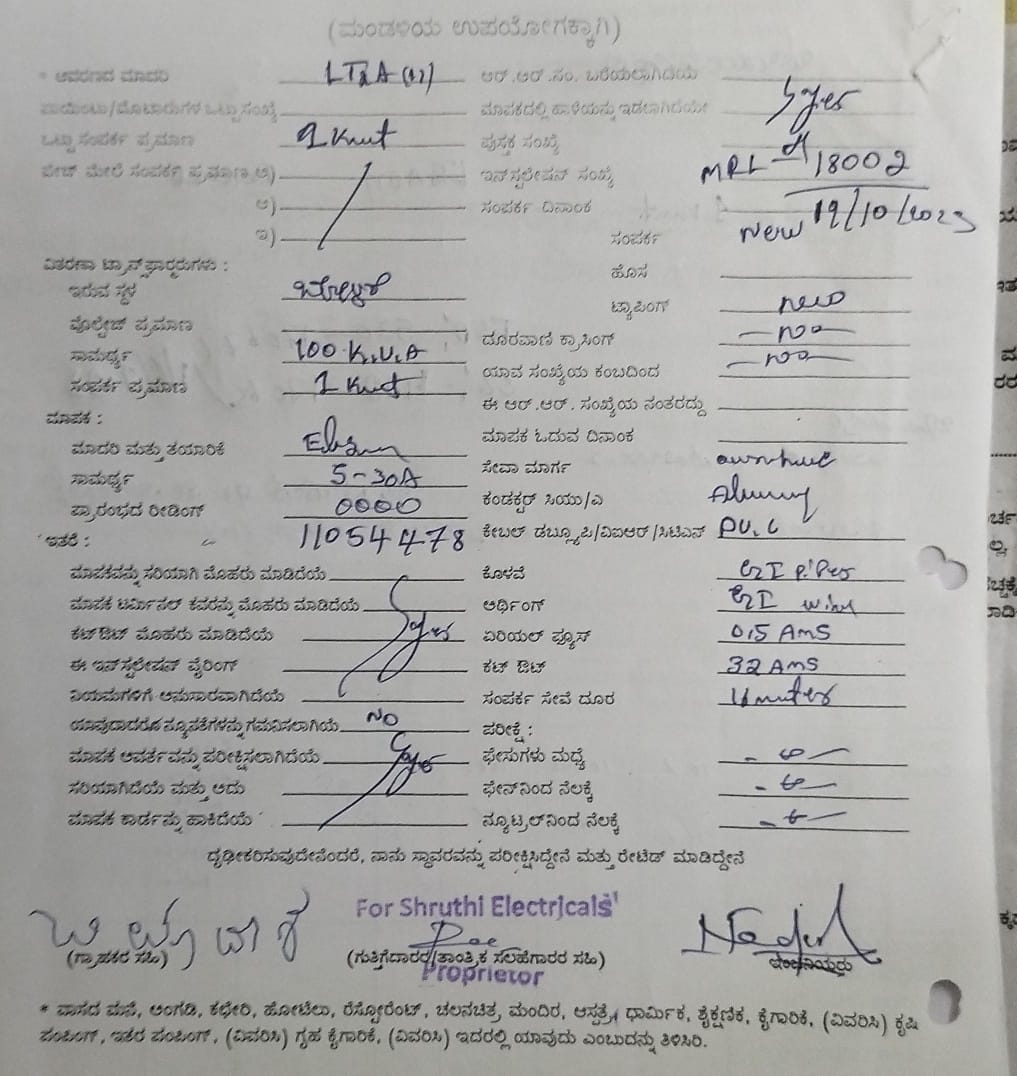 (ಮಂಡಳಿಯ ಉಪಯೋಗಕ್ಕಾಗಿ)
* ಆವರಣದ ಮಾದರಿ LT2A (ii) ಆರ್.ಆರ್.ನಂ. ಬರೆಯಲಾಗಿದೆಯೆ
ಪಾಯಿಂಟು/ಮೋಟಾರುಗಳ ಒಟ್ಟು ಸಂಖ್ಯೆ ಮಾಪಕದಲ್ಲಿ ಹಾಳೆಯನ್ನು ಇಡಲಾಗಿದೆಯೇ
ಒಟ್ಟು ಸಂಪರ್ಕ ಪ್ರಮಾಣ 1 Kwt ಪುಸ್ತಕ ಸಂಖ್ಯೆ
ಪೇಜ್ ಮೇಲೆ ಸಂಪರ್ಕ ಪ್ರಮಾಣ ಅ) ಇನ್‌ಸ್ಟಲೇಷನ್ ಸಂಖ್ಯೆ MRL 18002
ಆ) ಸಂಪರ್ಕ ದಿನಾಂಕ 19/10/2023
ಇ) ಸಂಪರ್ಕ New
ವಿತರಣಾ ಟ್ರಾನ್ಸ್‌ಫಾರ್ಮರುಗಳು : ಹೊಸ
ಇರುವ ಸ್ಥಳ ಟ್ಯಾಪಿಂಗ್ new
ವೊಲ್ಟೇಜ್ ಪ್ರಮಾಣ ದೂರವಾಣಿ ಕ್ರಾಸಿಂಗ್ —no—
ಸಾಮರ್ಥ್ಯ 100 K.V.A ಯಾವ ಸಂಖ್ಯೆಯ ಕಂಬದಿಂದ —no—
ಸಂಪರ್ಕ ಪ್ರಮಾಣ 1 Kwt ಈ ಆರ್.ಆರ್. ಸಂಖ್ಯೆಯ ನಂತರದ್ದು
ಮಾಪಕ : ಮಾಪಕ ಓದುವ ದಿನಾಂಕ
ಮಾದರಿ ಮತ್ತು ತಯಾರಿಕೆ ಸೇವಾ ಮಾರ್ಗ
ಸಾಮರ್ಥ್ಯ 5-30A ಕಂಡಕ್ಟರ್ ಸಿಯು/ಎ
ಪ್ರಾರಂಭದ ರೀಡಿಂಗ್ 0000
ಇತರೆ : 11054478 ಕೇಬಲ್ ಡಬ್ಲ್ಯೂಪಿ/ವಿಐಆರ್/ಸಿಟಿಎಸ್ PV.C
ಮಾಪಕವನ್ನು ಸರಿಯಾಗಿ ಮೊಹರು ಮಾಡಿದೆಯೆ ಕೊಳವೆ GI Pipes
ಮಾಪಕ ಟರ್ಮಿನಲ್ ಕವರನ್ನು ಮೊಹರು ಮಾಡಿದೆಯೆ ಅರ್ಥಿಂಗ್ GI wire
ಕಟ್‌ಔಟ್ ಮೊಹರು ಮಾಡಿದೆಯೆ ಏರಿಯಲ್ ಫ್ಯೂಸ್ 0.5 AmS
ಈ ಇನ್‌ಸ್ಟಲೇಷನ್ ವೈರಿಂಗ್ ಕಟ್ ಔಟ್ 32 AmS
ನಿಯಮಗಳಿಗೆ ಅನುಸಾರವಾಗಿದೆಯೆ ಸಂಪರ್ಕ ಸೇವೆ ದೂರ
ಯಾವುದಾದರೂ ನ್ಯೂನತೆಗಳನ್ನು ಗಮನಿಸಲಾಗಿಯೆ NO ಪರೀಕ್ಷೆ :
ಮಾಪಕ ಆವರ್ತವನ್ನು ಪರೀಕ್ಷಿಸಲಾಗಿದೆಯೆ ಫೇಸುಗಳು ಮಧ್ಯೆ
ಸರಿಯಾಗಿದೆಯೆ ಮತ್ತು ಅದು ಫೇಸ್‌ನಿಂದ ನೆಲಕ್ಕೆ
ಮಾಪಕ ಕಾರ್ಡನ್ನು ಹಾಕಿದೆಯೆ ನ್ಯೂಟ್ರಲ್‌ನಿಂದ ನೆಲಕ್ಕೆ
ದೃಢೀಕರಿಸುವುದೇನೆಂದರೆ, ನಾನು ಸ್ಥಾವರವನ್ನು ಪರೀಕ್ಷಿಸಿದ್ದೇನೆ ಮತ್ತು ರೇಟೆಡ್ ಮಾಡಿದ್ದೇನೆ
For Shruthi Electricals
(ಗ್ರಾಹಕರ ಸಹಿ) (ಗುತ್ತಿಗೆದಾರರ/ತಾಂತ್ರಿಕ ಸಲಹೆಗಾರರ ಸಹಿ) ಇಂಜಿನಿಯರು
Proprietor
* ವಾಸದ ಮನೆ, ಅಂಗಡಿ, ಕಛೇರಿ, ಹೋಟೆಲು, ರೆಸ್ಟೋರೆಂಟ್, ಚಲನಚಿತ್ರ ಮಂದಿರ, ಆಸ್ಪತ್ರೆ, ಧಾರ್ಮಿಕ, ಶೈಕ್ಷಣಿಕ, ಕೈಗಾರಿಕೆ, (ವಿವರಿಸಿ) ಕೃಷಿ
ಪಂಪಿಂಗ್, ಇತರ ಪಂಪಿಂಗ್, (ವಿವರಿಸಿ) ಗೃಹ ಕೈಗಾರಿಕೆ, (ವಿವರಿಸಿ) ಇದರಲ್ಲಿ ಯಾವುದು ಎಂಬುದನ್ನು ತಿಳಿಸಿರಿ.